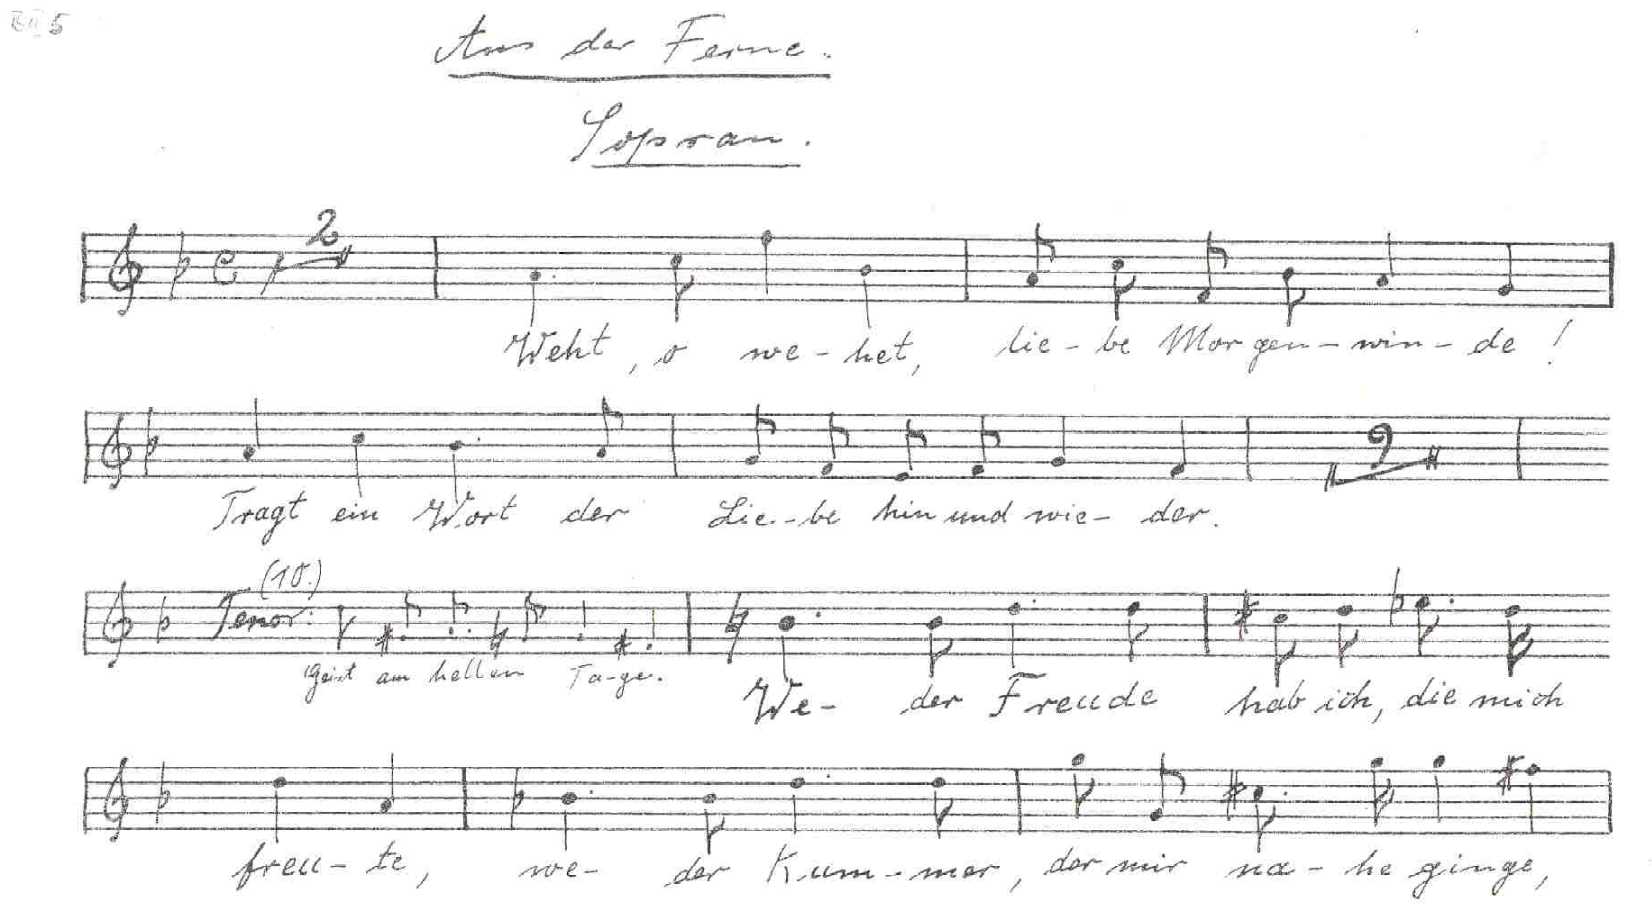 5
Aus der Ferne.
Sopran.
2
Weht, o we-het, lie-be Morgen-win-de!
Tragt ein Wort der Lie-be hin und wie-der.
9
(10.)
Tenor:
Geist am hellen Ta-ge.
We-der Freude hab ich, die mich
freu-te, we-der Kum-mer, der mir na-he ginge,